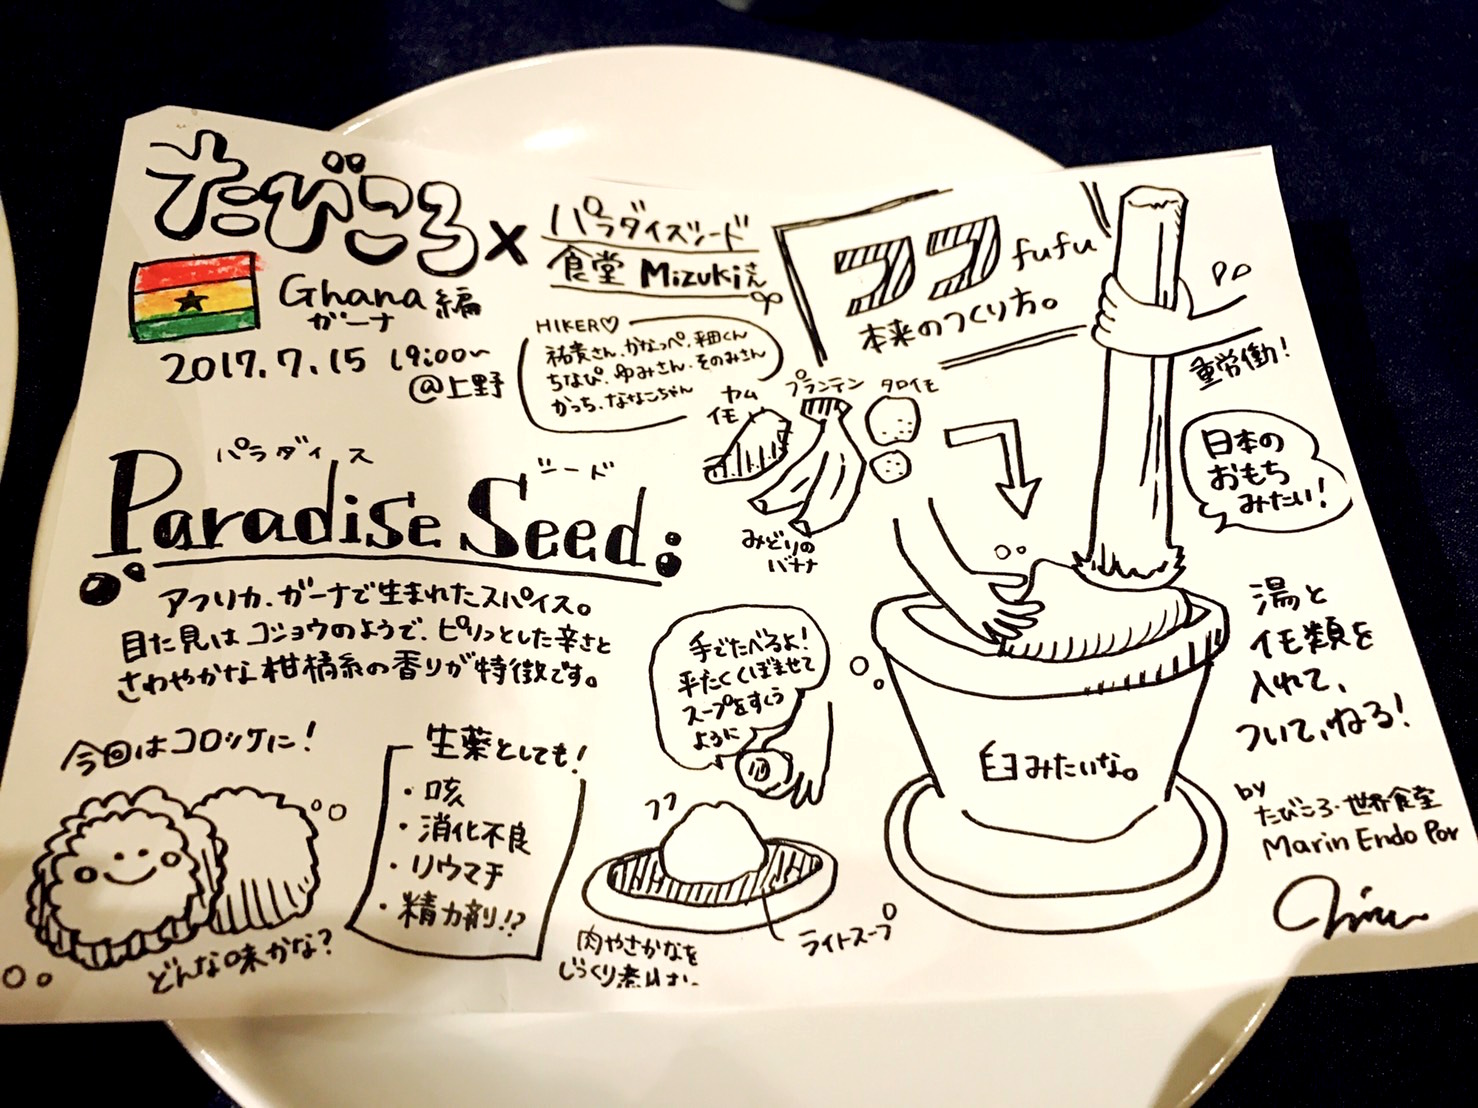 たびころ
×
パラダイスシード
食堂 Mizukiさん
Ghana編
ガーナ
2017.7.15 19:00〜
@上野
HIKER♡
祐貴さん、かなっぺ、平田くん
ちなぴ、ゆみさん、そのみさん
かっち、ななこちゃん
フフ fufu
本来のつくり方。
ヤム
イモ
プランテン
タロイモ
みどりの
バナナ
重労働!
日本の
おもち
みたい!
湯と
イモ類を
入れて、
ついて、ねる!
臼みたいな。
パラダイス
シード
Paradise Seed
アフリカ、ガーナで生まれたスパイス。
目た見はコショウのようで、ピリっとした辛さと
さわやかな柑橘系の香りが特徴です。
今回はコロッケに!
どんな味かな?
生薬としても!
・咳
・消化不良
・リウマチ
・精力剤!?
手でたべるよ!
平たくくぼませて
スープをすくう
ように
フフ
ライトスープ
肉やさかなを
じっくり煮
by
たびころ・世界食堂
Marin Endo Por